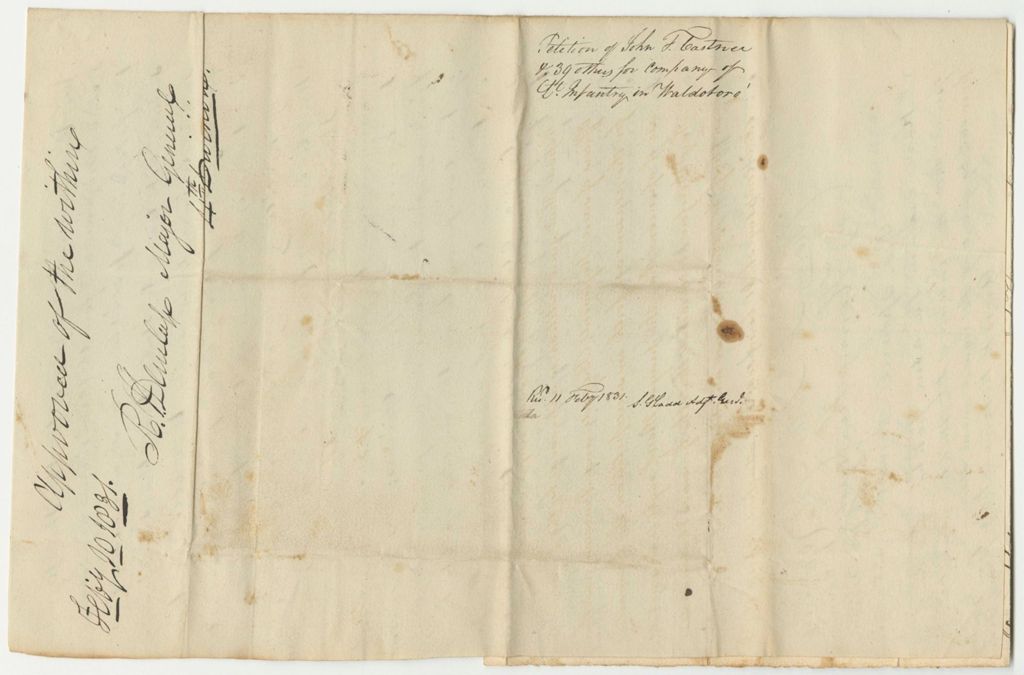 Petition of John F. Castner
& 39 others for Company of
Lt. Infantry in Waldoboro'
Recd. 11 Feby 1831. S. G. Ladd Adjt. Genl.
Approved of the within
R. Dunlap Major General
4th Division.
Feby 10 1831.